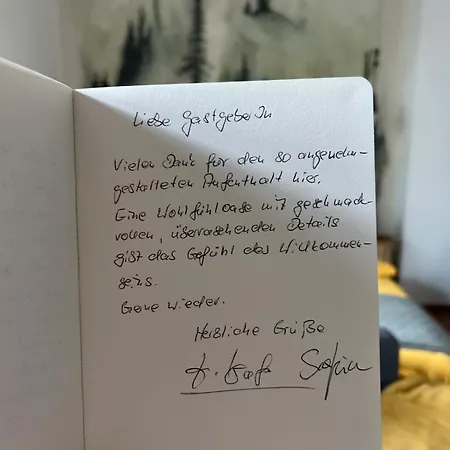 Liebe GastgeberIn
Vielen Dank für den so angenehm-
gestalteten Aufenthalt hier.
Eine Wohlfühloase mit geschmack
vollen, überraschenden Details
gibt das Gefühl des Willkommen-
seins.
Gerne wieder.
Herzliche Grüße